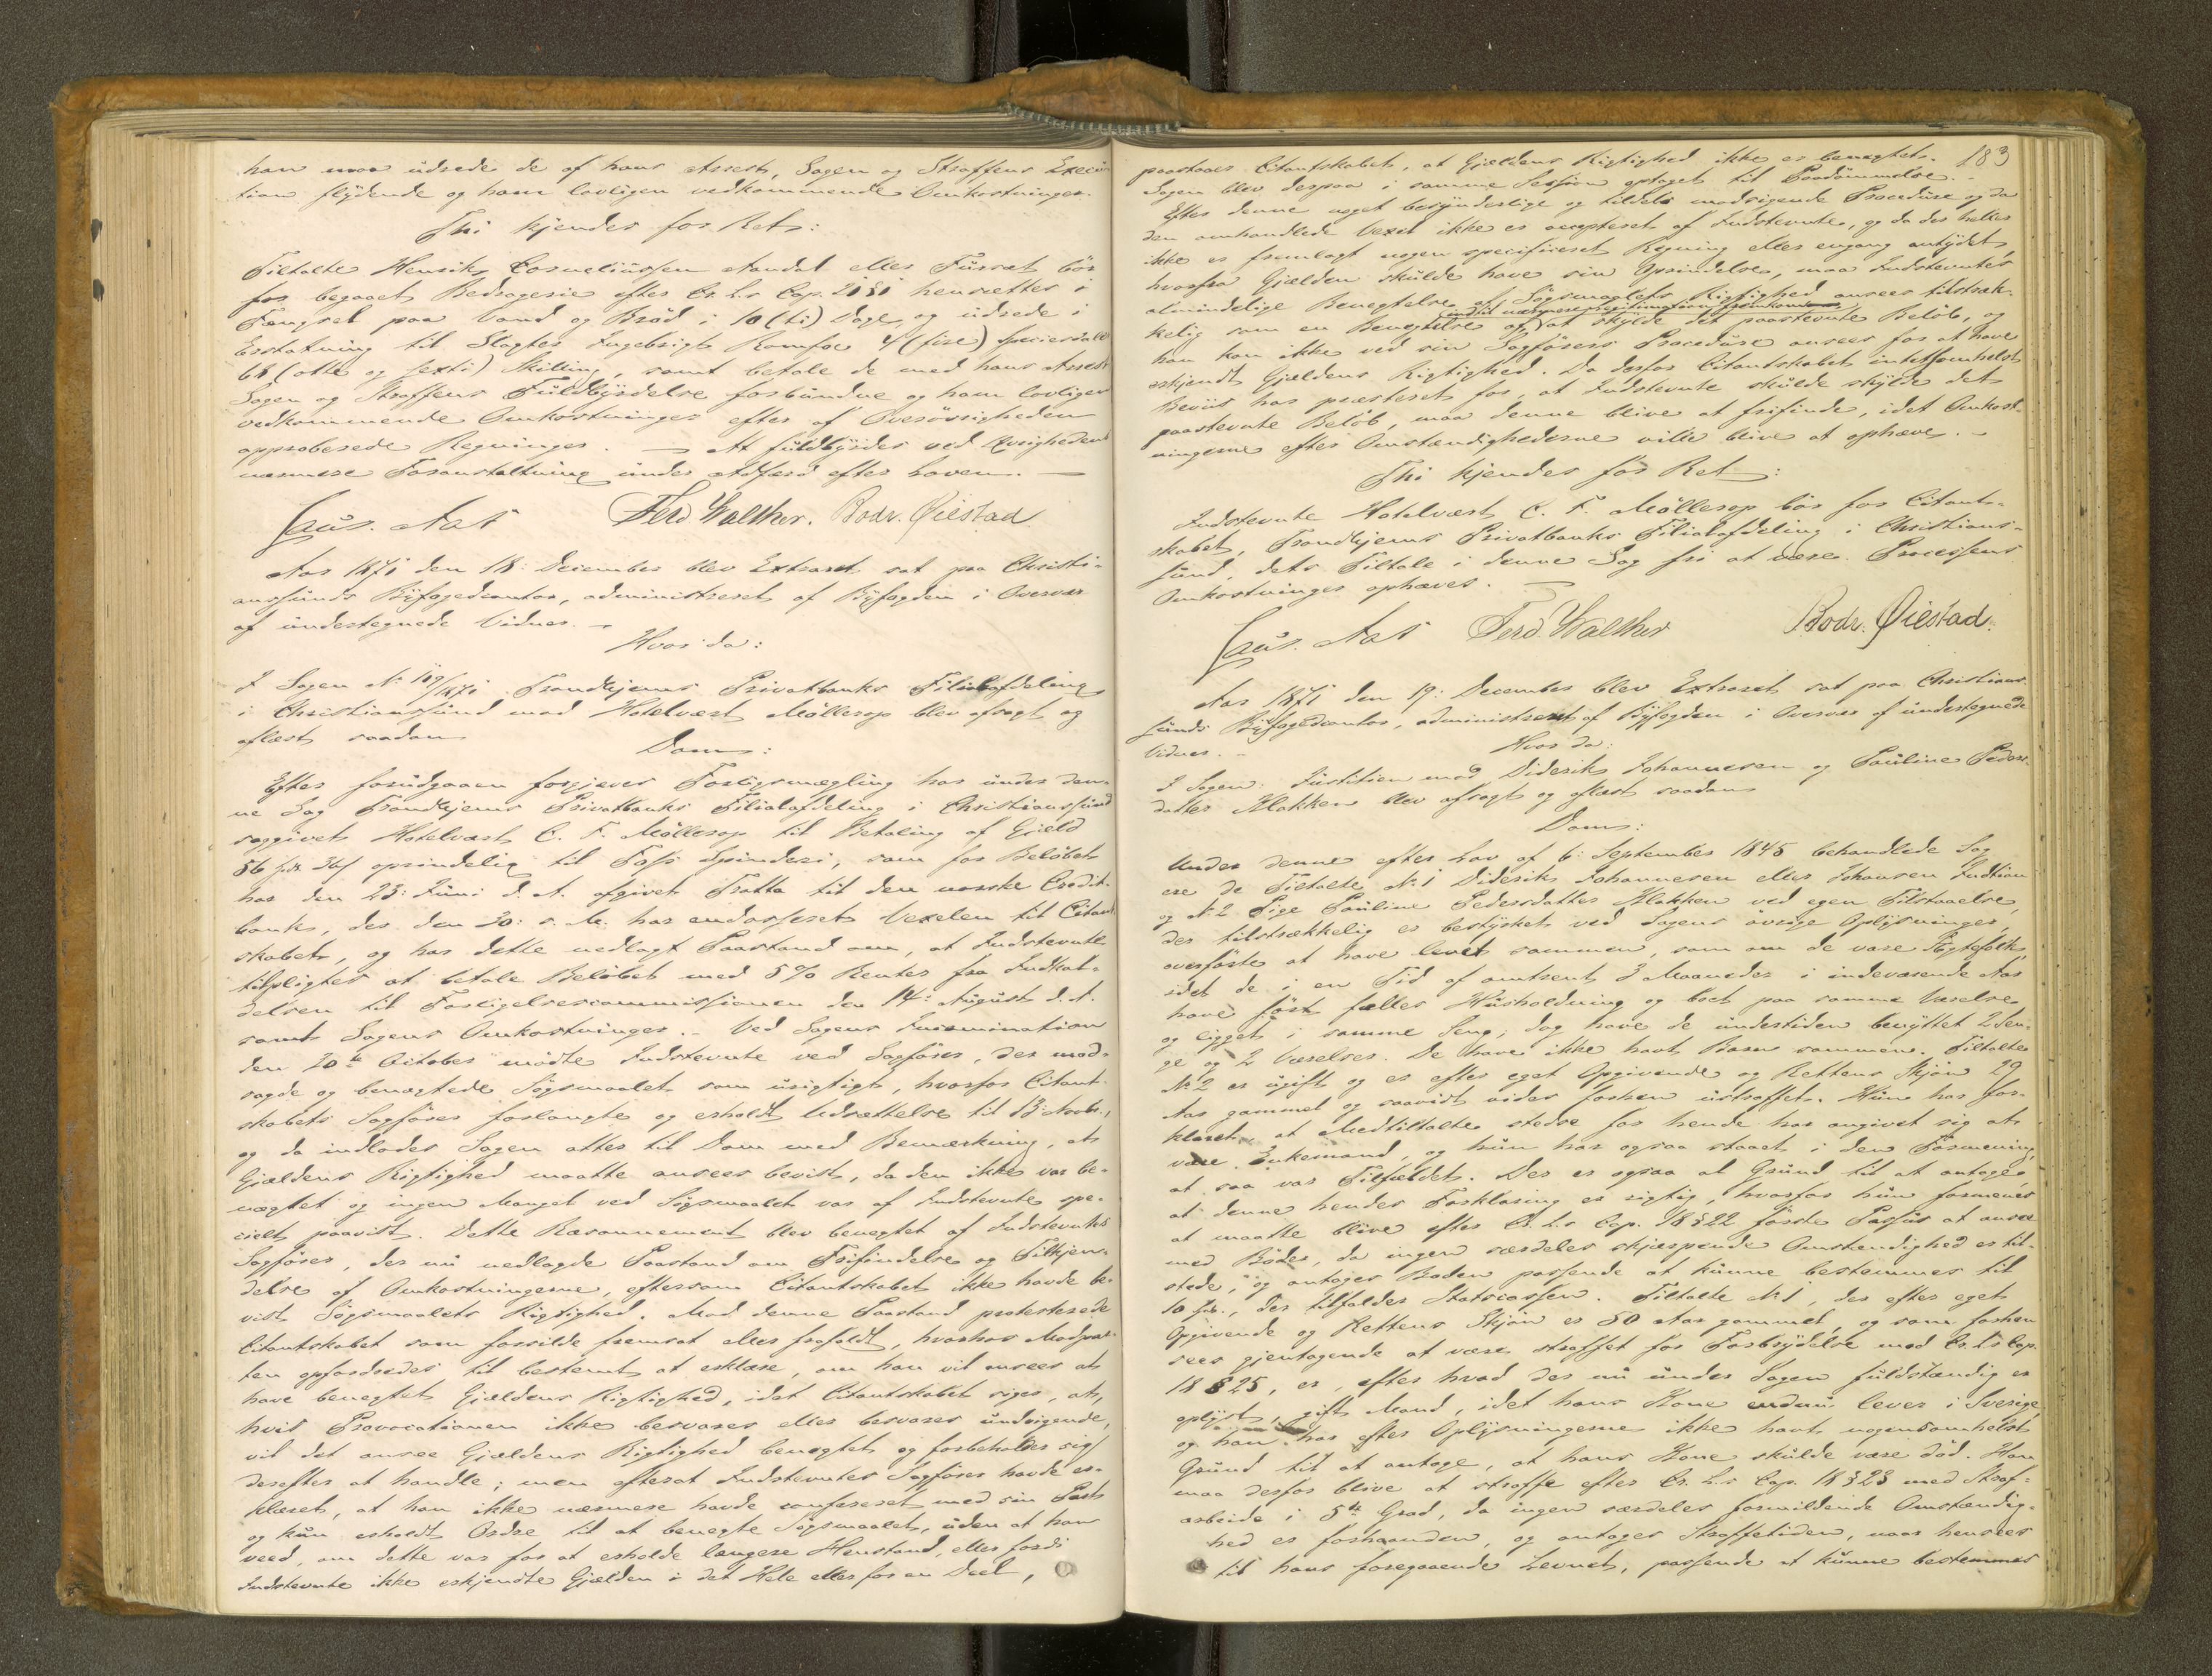 han maa udrede de af hans Arrest, Sagen og Straffens Execu-
tion flydende og ham lovligen vedkommende Omkostninger.
Thi kjendes for Ret:
Tiltalte Henrik Corneliussen Aandal eller Fursæt bör
for begaaet Bedragerie efter Cr. L.s Cap. 21 § 1 hensættes i
Fængsel paa Vand og Bröd i 10 (ti) Dage og udrede i
Erstatning til Slagter Ingebrigt Romfoe 4 (fire) Speciesdaler
68 (otte og sexti) Skilling, samt betale de med hans Arrest
Sagen og Straffens Fuldbyrdelse forbundne og ham lovligen
vedkommende Omkostninger efter af Overövrigheden
approberede Regninger. — At fuldbyrdes ved Övrighedens
nærmere Foranstaltning under Adfærd efter Loven. —
Laur. Aas Ferd Walther. Bodv. Øiestad
Aar 1871 den 18: December blev Extraret sat paa Christi-
anssunds Byfogedcontor, administreret af Byfogden i Overvær
af undertegnede Vidner. —
Hvor da:
I Sagen No 109/1871 Trondhjems Privatbanks Filialafdeling
i Christianssund mod Hotelvært Möllerop blev afsagt og
aflæst saadan
Dom:
Efter forudgaaen forgjæves Forligsmægling har under den-
ne Sag Trondhjems Privatbanks Filialafdeling i Christianssund
saggivet Hotelvært C. F. Möllerop til Betaling af Gjæld
56 Spd. 36 s oprindelig til Foss Spinderi, som for Belöbet
har den 23: Juni d. A. afgivet Tratta til den norske Credit-
bank, der den 30: s. M. har endosseret Vexelen til Citant-
skabet, og har dette nedlagt Paastand om, at Indstevnte
tilpligtes at betale Belöbet med 5 % Renter fra Indkal-
delsen til Forligelsescommissionen den 14: August d. A.
samt Sagens Omkostninger. – Ved Sagens Incamination
den 20de October mödte Indstevnte ved Sagförer, der mod-
sagde og benægtede Sögsmaalet som urigtigt, hvorfor Citant-
skabets Sagförer forlangte og erholdt Udsættelse til 13 Novbr.,
og da indlodes Sagen atter til Dom med Bemærkning, at
Gjældens Rigtighed maatte ansees bevist, da den ikke var be-
nægtet og ingen Mangel ved Sögsmaalet var af Indstevnte spe-
cielt paavist. Dette Raisonnement blev benægtet af Indstevntes
Sagförer, der nu nedlagde Paastand om Frifindelse og Tilkjen-
delse af Omkostningerne, eftersom Citantskabet ikke havde be-
vist Sögsmaalets Rigtighed. Mod denne Paastand protesterede
Citantskabet som forsilde fremsat eller frafaldt, hvorhos Modpar-
ten opfordredes til bestemt at erklære, om han vil ansees at
have benægtet Gjældens Rigtighed, idet Citantskabet siger, at,
hvis Provocationen ikke besvares eller besvares undvigende,
vil det ansee Gjældens Rigtighed benægtet og forbeholder sig
derefter at handle; men efterat Indstevntes Sagförer havde er-
klæret, at han ikke nærmere havde confereret med sin Part
og kun erholdt Ordre til at benægte Sögsmaalet, uden at han
veed, om dette var for at erholde længere Henstand, eller fordi
Indstevnte ikke erkjendte Gjælden i det Hele eller for en Deel,
183
paastaaer Citantskabet, at Gjældens Rigtighed ikke er benægtet.
Sagen blev derpaa i samme Session optaget til Paadömmelse. –
Efter denne noget besynderlige og tildels modsigende Procedure og da
den omhandlede Vexel ikke er accepteret af Indstevnte, og da der heller
ikke er fremlagt nogen specificeret Regning eller engang antydet,
hvorfra Gjælden skulde have sin Oprindelse, maa Indstevntes
almindelige Benægtelse af Sögsmaalets Rigtighed ansees tilstræk-
kelig som en Benægtelse af at skylde det paastevnte Belöb, og
han kan ikke ved sin Sagförers Procedure ansees for at have
erkjendt Gjældens Rigtighed. Da derfor Citantskabet intetsomhelst
Beviis har præsteret for, at Indstevnte skulde skylde det
paastevnte Belöb, maa denne blive at frifinde, idet Omkost-
ningerne efter Omstændighederne ville blive at ophæve. –
Thi kjendes for Ret:
Indstevnte Hotelvært C. F. Möllerop bör for Citant-
skabet, Trondhjems Privatbanks Filialafdeling i Christians-
sund, dets Tiltale i denne Sag fri at være. Processens
Omkostninger ophæves. —
Laur. Aas Ferd. Walther Bodv. Øiestad.
Aar 1871 den 19: December blev Extraret sat paa Christians-
sunds Byfogedcontor, administreret af Byfogden i Overvær af undertegnede
Vidner. –
Hvor da:
I Sagen Justitien mod Diderik Johannesen og Pauline Peders-
datter Klakken blev afsagt og aflæst saadan
Dom:
Under denne efter Lov af 6: September 1845 behandlede Sag
ere de Tiltalte No 1 Diderik Johannesen eller Johansen Indtian
og No 2 Pige Pauline Pedersdatter Klakken ved egen Tilstaaelse,
der tilstrækkelig er bestyrket ved Sagens övrige Oplysninger,
overförte at have levet sammen, som om de vare Ægtefolk,
idet de i en Tid af omtrent 3 Maaneder i indeværende Aar
have fört fælles Husholdning og boet paa samme Værelse
og ligget i samme Seng, dog have de undertiden benyttet 2 Sen-
ge og 2 Værelser. De have ikke havt Barn sammen. Tiltalte
No 2 er ugift og er efter eget Opgivende og Rettens Skjön 29
Aar gammel og saavidt vides forhen ustraffet. Hun har for-
klaret, at Medtiltalte stedse for hende har angivet sig at
være Enkemand, og hun har ogsaa staaet i den Formening,
at saa var Tilfældet. Der er ogsaa al Grund til at antage,
at denne hendes Forklaring er rigtig, hvorfor hun formenes
at maatte blive efter Cr. L.s Cap. 18 § 22 förste Passus at ansee
med Böder, da ingen særdeles skjærpende Omstændighed er til-
stede, og antages Boden passende at kunne bestemmes til
10 Spd., der tilfalder Statscassen. Tiltalte No 1, der efter eget
Opgivende og Rettens Skjön er 50 Aar gammel, og som forhen
sees gjentagende at være straffet for Forbrydelse mod Cr. L.s Cap.
18 § 25, er, efter hvad der nu under Sagen fuldstændig er
oplyst, gift Mand, idet hans Kone endnu lever i Sverige,
og han har efter Oplysningerne ikke havt nogensomhelst
Grund til at antage, at hans Kone skulde være död. Han
maa derfor blive at straffe efter Cr. L.s Cap. 18 § 23 med Straf-
arbeide i 5te Grad, da ingen særdeles formildende Omstændig-
hed er forhaanden, og antages Straffetiden, naar hensees
til hans foregaaende Levnet, passende at kunne bestemmes